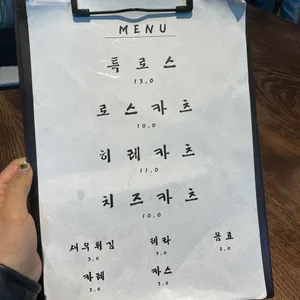 MENU
특로스
13.0
로스카츠
10.0
히레카츠
11.0
치즈카츠
10.0
새우튀김 테라 음료
3.0 3.0 2.0
카레 카스
3.0 3.0